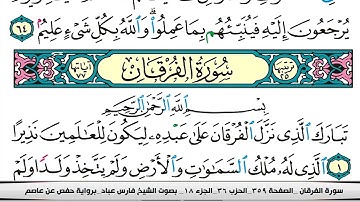 يُرْجَعُونَ إِلَيْهِ فَيُنَبِّئُهُم بِمَا عَمِلُوا۟ ۗ وَٱللَّهُ بِكُلِّ شَىْءٍ عَلِيمٌۢ ٦٤
ترتيبها ٢٥ سُورَةُ الْفُرْقَانِ آياتها ٧٧
بِسْمِ ٱللَّهِ ٱلرَّحْمَٰنِ ٱلرَّحِيمِ
تَبَارَكَ ٱلَّذِى نَزَّلَ ٱلْفُرْقَانَ عَلَىٰ عَبْدِهِۦ لِيَكُونَ لِلْعَٰلَمِينَ نَذِيرًا
١ ٱلَّذِى لَهُۥ مُلْكُ ٱلسَّمَٰوَٰتِ وَٱلْأَرْضِ وَلَمْ يَتَّخِذْ وَلَدًا وَلَمْ
سورة الفرقان _الصفحة ٣٥٩_الحزب ٣٦_الجزء ١٨_ بصوت الشيخ فارس عباد_برواية حفص عن عاصم